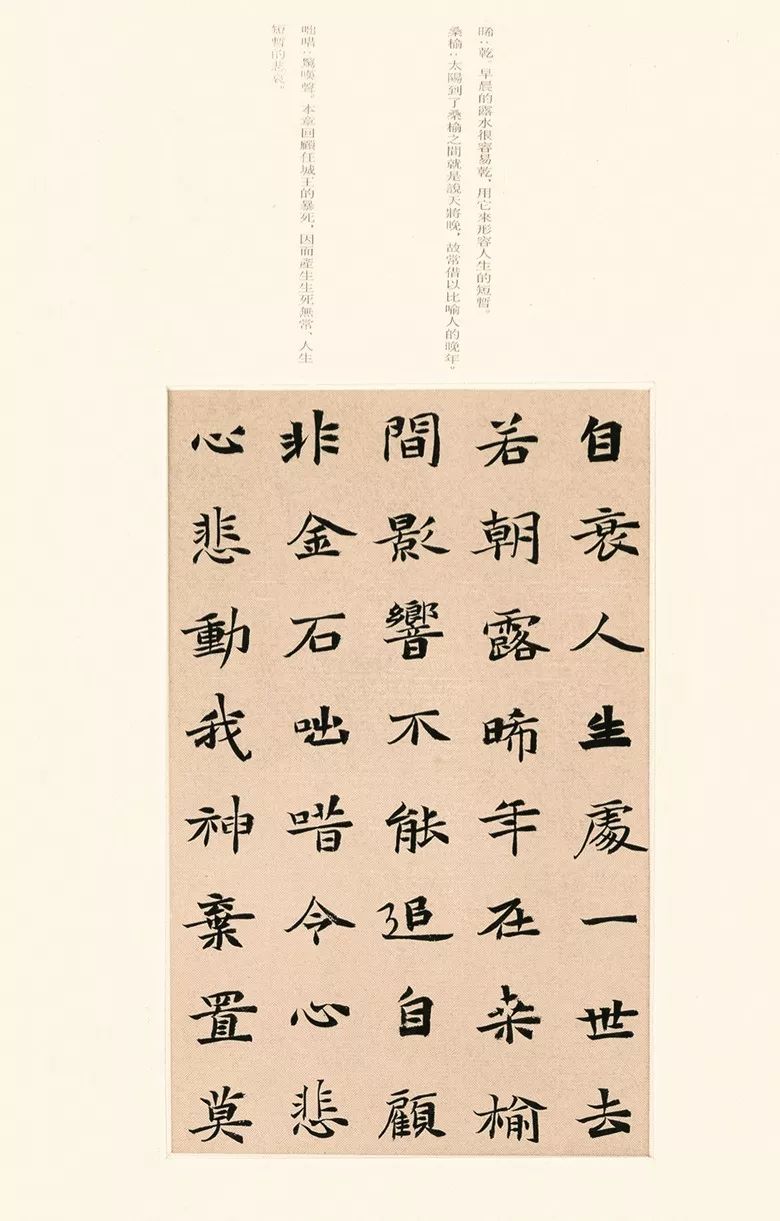 晞：乾。早晨的露水很容易乾，用它來形容人生的短暫。
桑榆：太陽到了桑榆之間就是說天將晚，故常借以比喻人的晚年。
咄唶：驚嘆聲。本章回顧任城王的暴死，因而產生生死無常、人生
短暫的悲哀。
自衰人生處一世去
若朝露晞年在桒榆
間影響不能追自顧
非金石咄唶令心悲
心悲動我神棄置莫